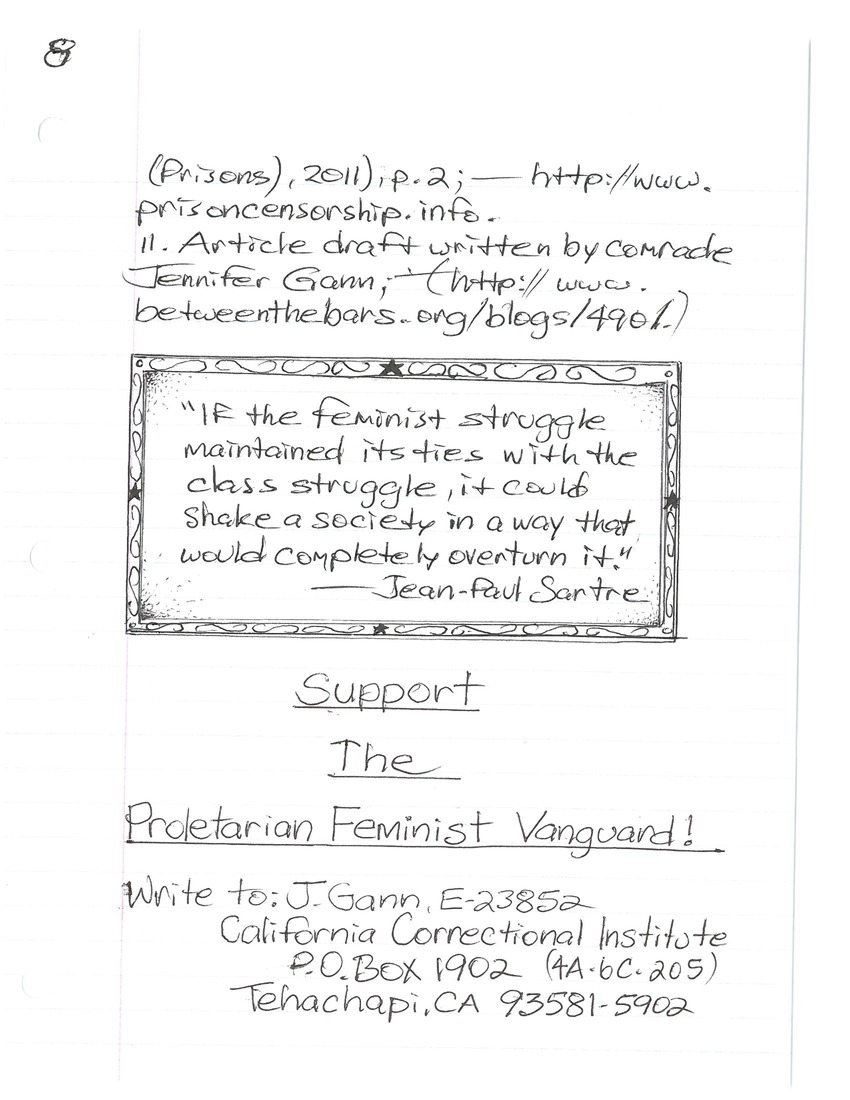 8
(Prisons), 2011), p. 2; — http://www.
prisoncensorship.info.
11. Article draft written by comrade
Jennifer Gann; — (http://www.
betweenthebars.org/blogs/4901.)
"If the feminist struggle
maintained its ties with the
class struggle, it could
shake a society in a way that
would completely overturn it."
— Jean-Paul Sartre
Support
The
Proletarian Feminist Vanguard!
Write to: J. Gann, E-23852
California Correctional Institute
P.O. Box 1902 (4A-6C-205)
Tehachapi, CA 93581-5902